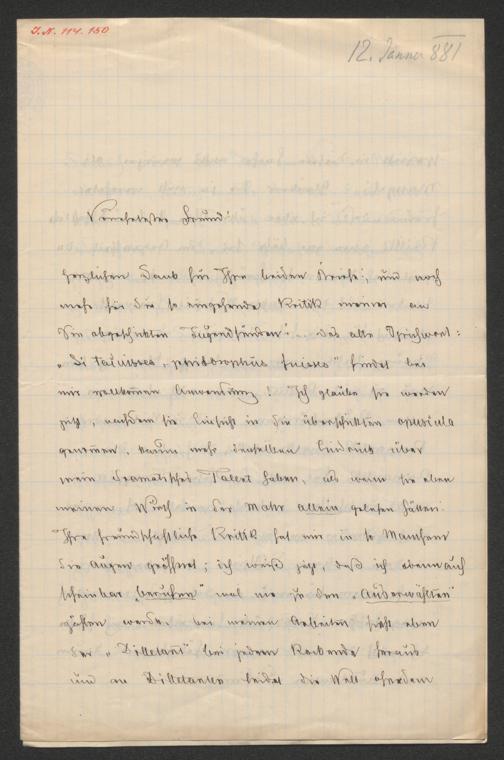 I.N. 114.150
12. Jänner 881
Verehrtester Freund!
Herzlichen Dank für Ihre beiden Briefe; und noch
mehr für die so eingehende Kritik meiner an
Sie abgeschickten Jugendsünden! .. Das alte Sprichwort:
„Si tacuisses, philosophus fuisses" findet bei
mir vollkommen Anwendung! Ich glaube sie werden
jetzt, nachdem sie Einsicht in die überschickten opuscula
genommen, kaum mehr denselben Eindruck über
mein dramatisches Talent haben, als wenn sie eben
meinen Wurf in der Mappe allein gelesen hätten.
Ihre freundschaftliche Kritik hat mir in so Manchem
die Augen geöffnet; ich weiß jetzt, daß ich, wenn auch
scheinbar „berufen" mal nie zu den „Auserwählten"
zählen werde, bei meinen Arbeiten sieht eben
der „Dilletant" bei jedem Rockende heraus
und an Dilletanten leidet die Welt ohnedem